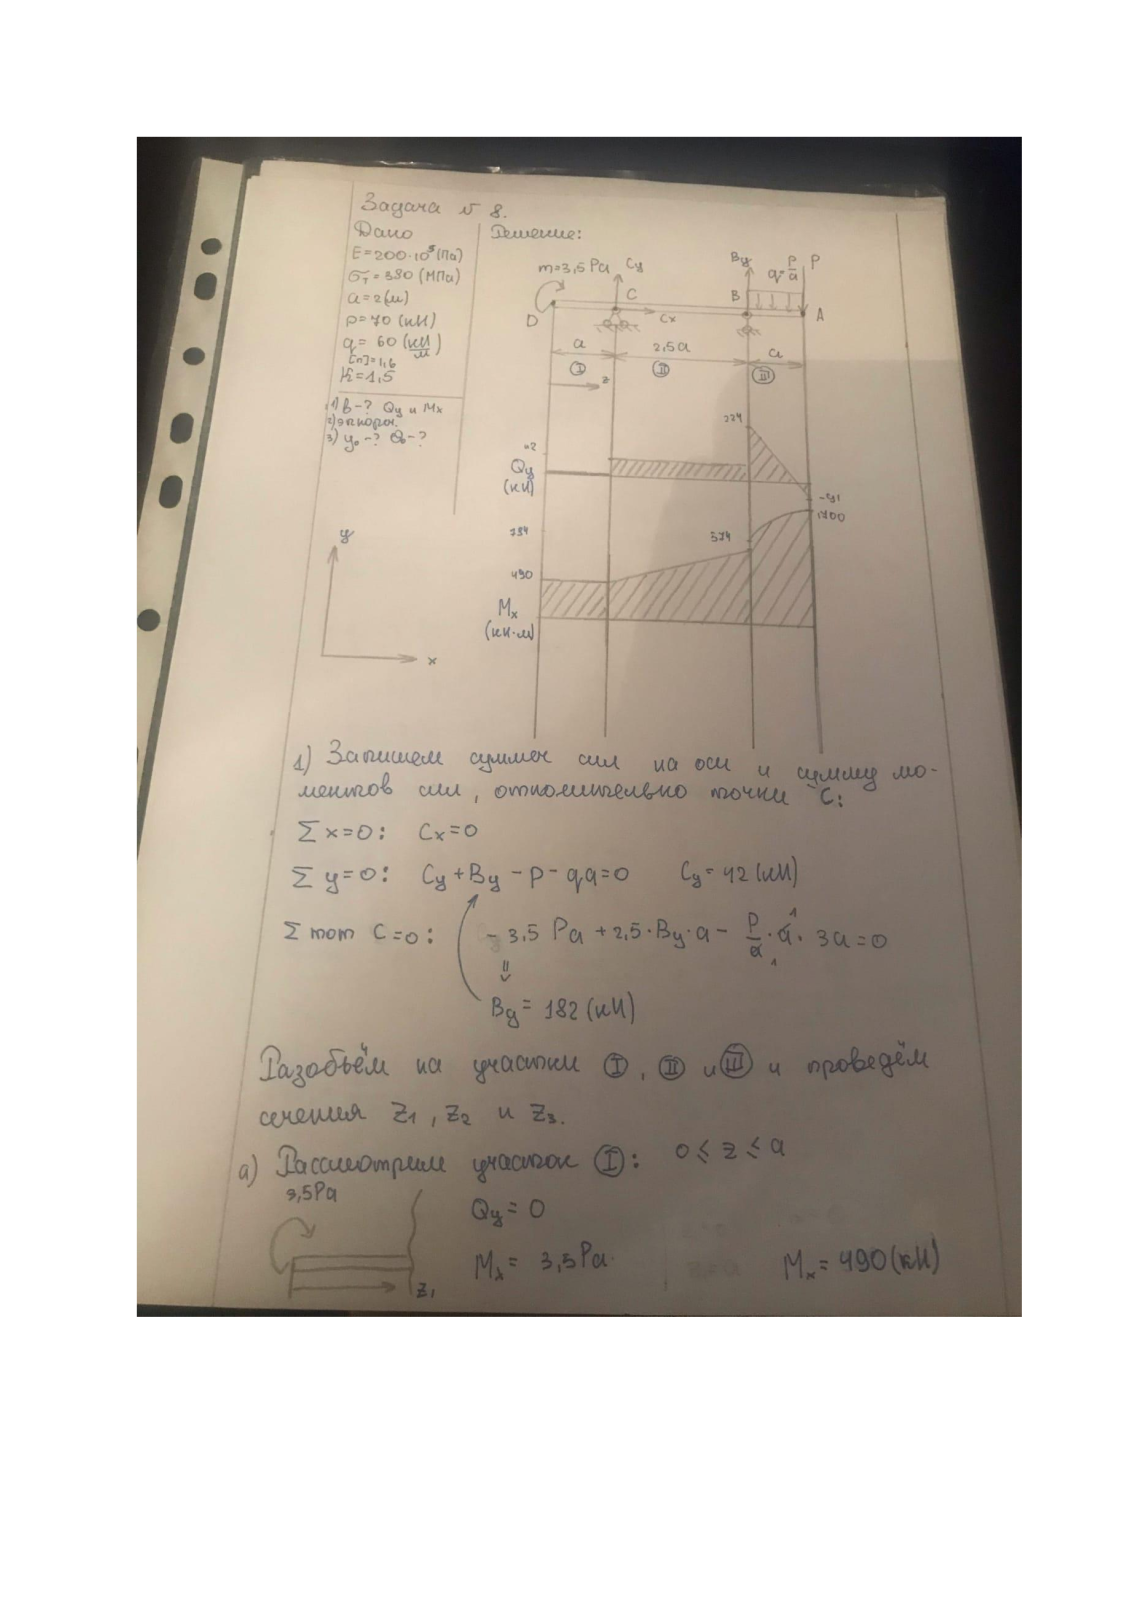 Задача № 8.
Дано
Решение:
E=200·10⁵(Па)
σт=380 (МПа)
a=2(м)
P=70 (кН)
q= 60 (кН/м)
[n]=1,6
K=1,5
1) в-? Qy и Mx
2) эпюры.
3) y₀-? θ₀-?
m=3,5 Pa Cy By q=P/a P
D C Cx B A
a 2,5a a
I II III
z
224
42
Qy
(кН)
700
794
574
490
Mx
(кН·м)
y
x
1) Запишем сумму сил на оси и сумму мо-
ментов сил, относительно точки C:
Σx=0: Cx=0
Σy=0: Cy+By-P-qa=0 Cy=42(кН)
Σmom C=0: - 3,5 Pa +2,5·By·a - P/a·a· 3a=0
1
1
⇓
By= 182 (кН)
Разобьём на участки I, II и III и проведём
сечения Z₁, Z₂ и Z₃.
a) Рассмотрим участок I: 0≤z≤a
3,5Pa
Qy= 0
Mx= 3,5Pa. Mx=490(кН)
Z₁